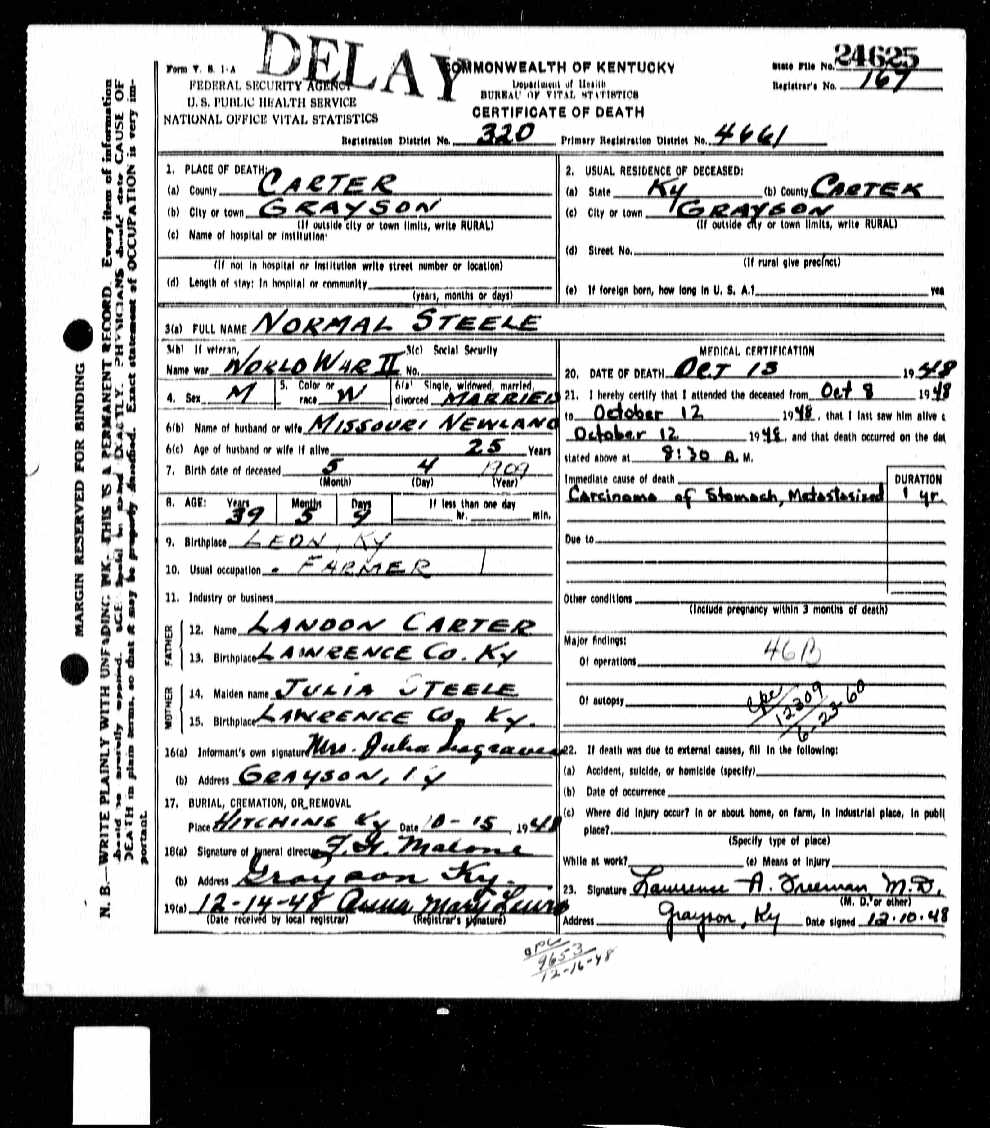 DELAY
24625
Form V. S. 1-A
COMMONWEALTH OF KENTUCKY
State File No.
FEDERAL SECURITY AGENCY
Department of Health
Registrar's No. 167
U. S. PUBLIC HEALTH SERVICE
BUREAU OF VITAL STATISTICS
NATIONAL OFFICE VITAL STATISTICS
CERTIFICATE OF DEATH
Registration District No. 320 Primary Registration District No. 4661
MARGIN RESERVED FOR BINDING
N. B.—WRITE PLAINLY WITH UNFADING INK—THIS IS A PERMANENT RECORD. Every item of information
should be carefully supplied. AGE should be stated EXACTLY. PHYSICIANS should state CAUSE OF
DEATH in plain terms, so that it may be properly classified. Exact statement of OCCUPATION is very im-
portant.
1. PLACE OF DEATH:
(a) County CARTER
(b) City or town GRAYSON
(If outside city or town limits, write RURAL)
(c) Name of hospital or institution
(If not in hospital or institution write street number or location)
(d) Length of stay: In hospital or community
(years, months or days)
2. USUAL RESIDENCE OF DECEASED:
(a) State KY (b) County CARTER
(c) City or town GRAYSON
(If outside city or town limits, write RURAL)
(d) Street No.
(If rural give precinct)
(e) If foreign born, how long in U. S. A.? yea
3(a) FULL NAME NORMAL STEELE
3(b) If veteran, 3(c) Social Security
Name war WORLD WAR II No.
4. Sex M 5. Color or race W 6(a) Single, widowed, married, divorced MARRIED
6(b) Name of husband or wife MISSOURI NEWLAND
6(c) Age of husband or wife if alive 25 Years
7. Birth date of deceased 5 4 1909
(Month) (Day) (Year)
8. AGE: Years Months Days If less than one day
39 5 9 hr. min.
9. Birthplace LEON, KY
10. Usual occupation FARMER
11. Industry or business
FATHER
12. Name LANDON CARTER
13. Birthplace LAWRENCE CO. KY
MOTHER
14. Maiden name JULIA STEELE
15. Birthplace LAWRENCE CO, KY.
16(a) Informant's own signature Mrs. Julia
(b) Address GRAYSON, KY
17. BURIAL, CREMATION, OR REMOVAL
Place HITCHINS KY Date 10-15 1948
18(a) Signature of funeral director F. H. Malone
(b) Address Grayson Ky.
19(a) 12-14-48 Anna Mary Lewis
(Date received by local registrar) (Registrar's signature)
MEDICAL CERTIFICATION
20. DATE OF DEATH OCT 13 1948
21. I hereby certify that I attended the deceased from Oct 8 1948
to October 12 1948, that I last saw him alive o
October 12 1948, and that death occurred on the dat
stated above at 8:30 A. M.
Immediate cause of death DURATION
Carcinoma of Stomach, Metastasized 1 yr
Due to
Other conditions
(Include pregnancy within 3 months of death)
Major findings: 46B
Of operations
Of autopsy
12309
6-23-60
22. If death was due to external causes, fill in the following:
(a) Accident, suicide, or homicide (specify)
(b) Date of occurrence
(c) Where did injury occur? In or about home, on farm, in industrial place, in publi
place?
(Specify type of place)
While at work? (e) Means of injury
23. Signature Lawrence A. Freeman M.D.
(M. D. or other)
Address Grayson, Ky Date signed 12-10-48
9653
12-16-48